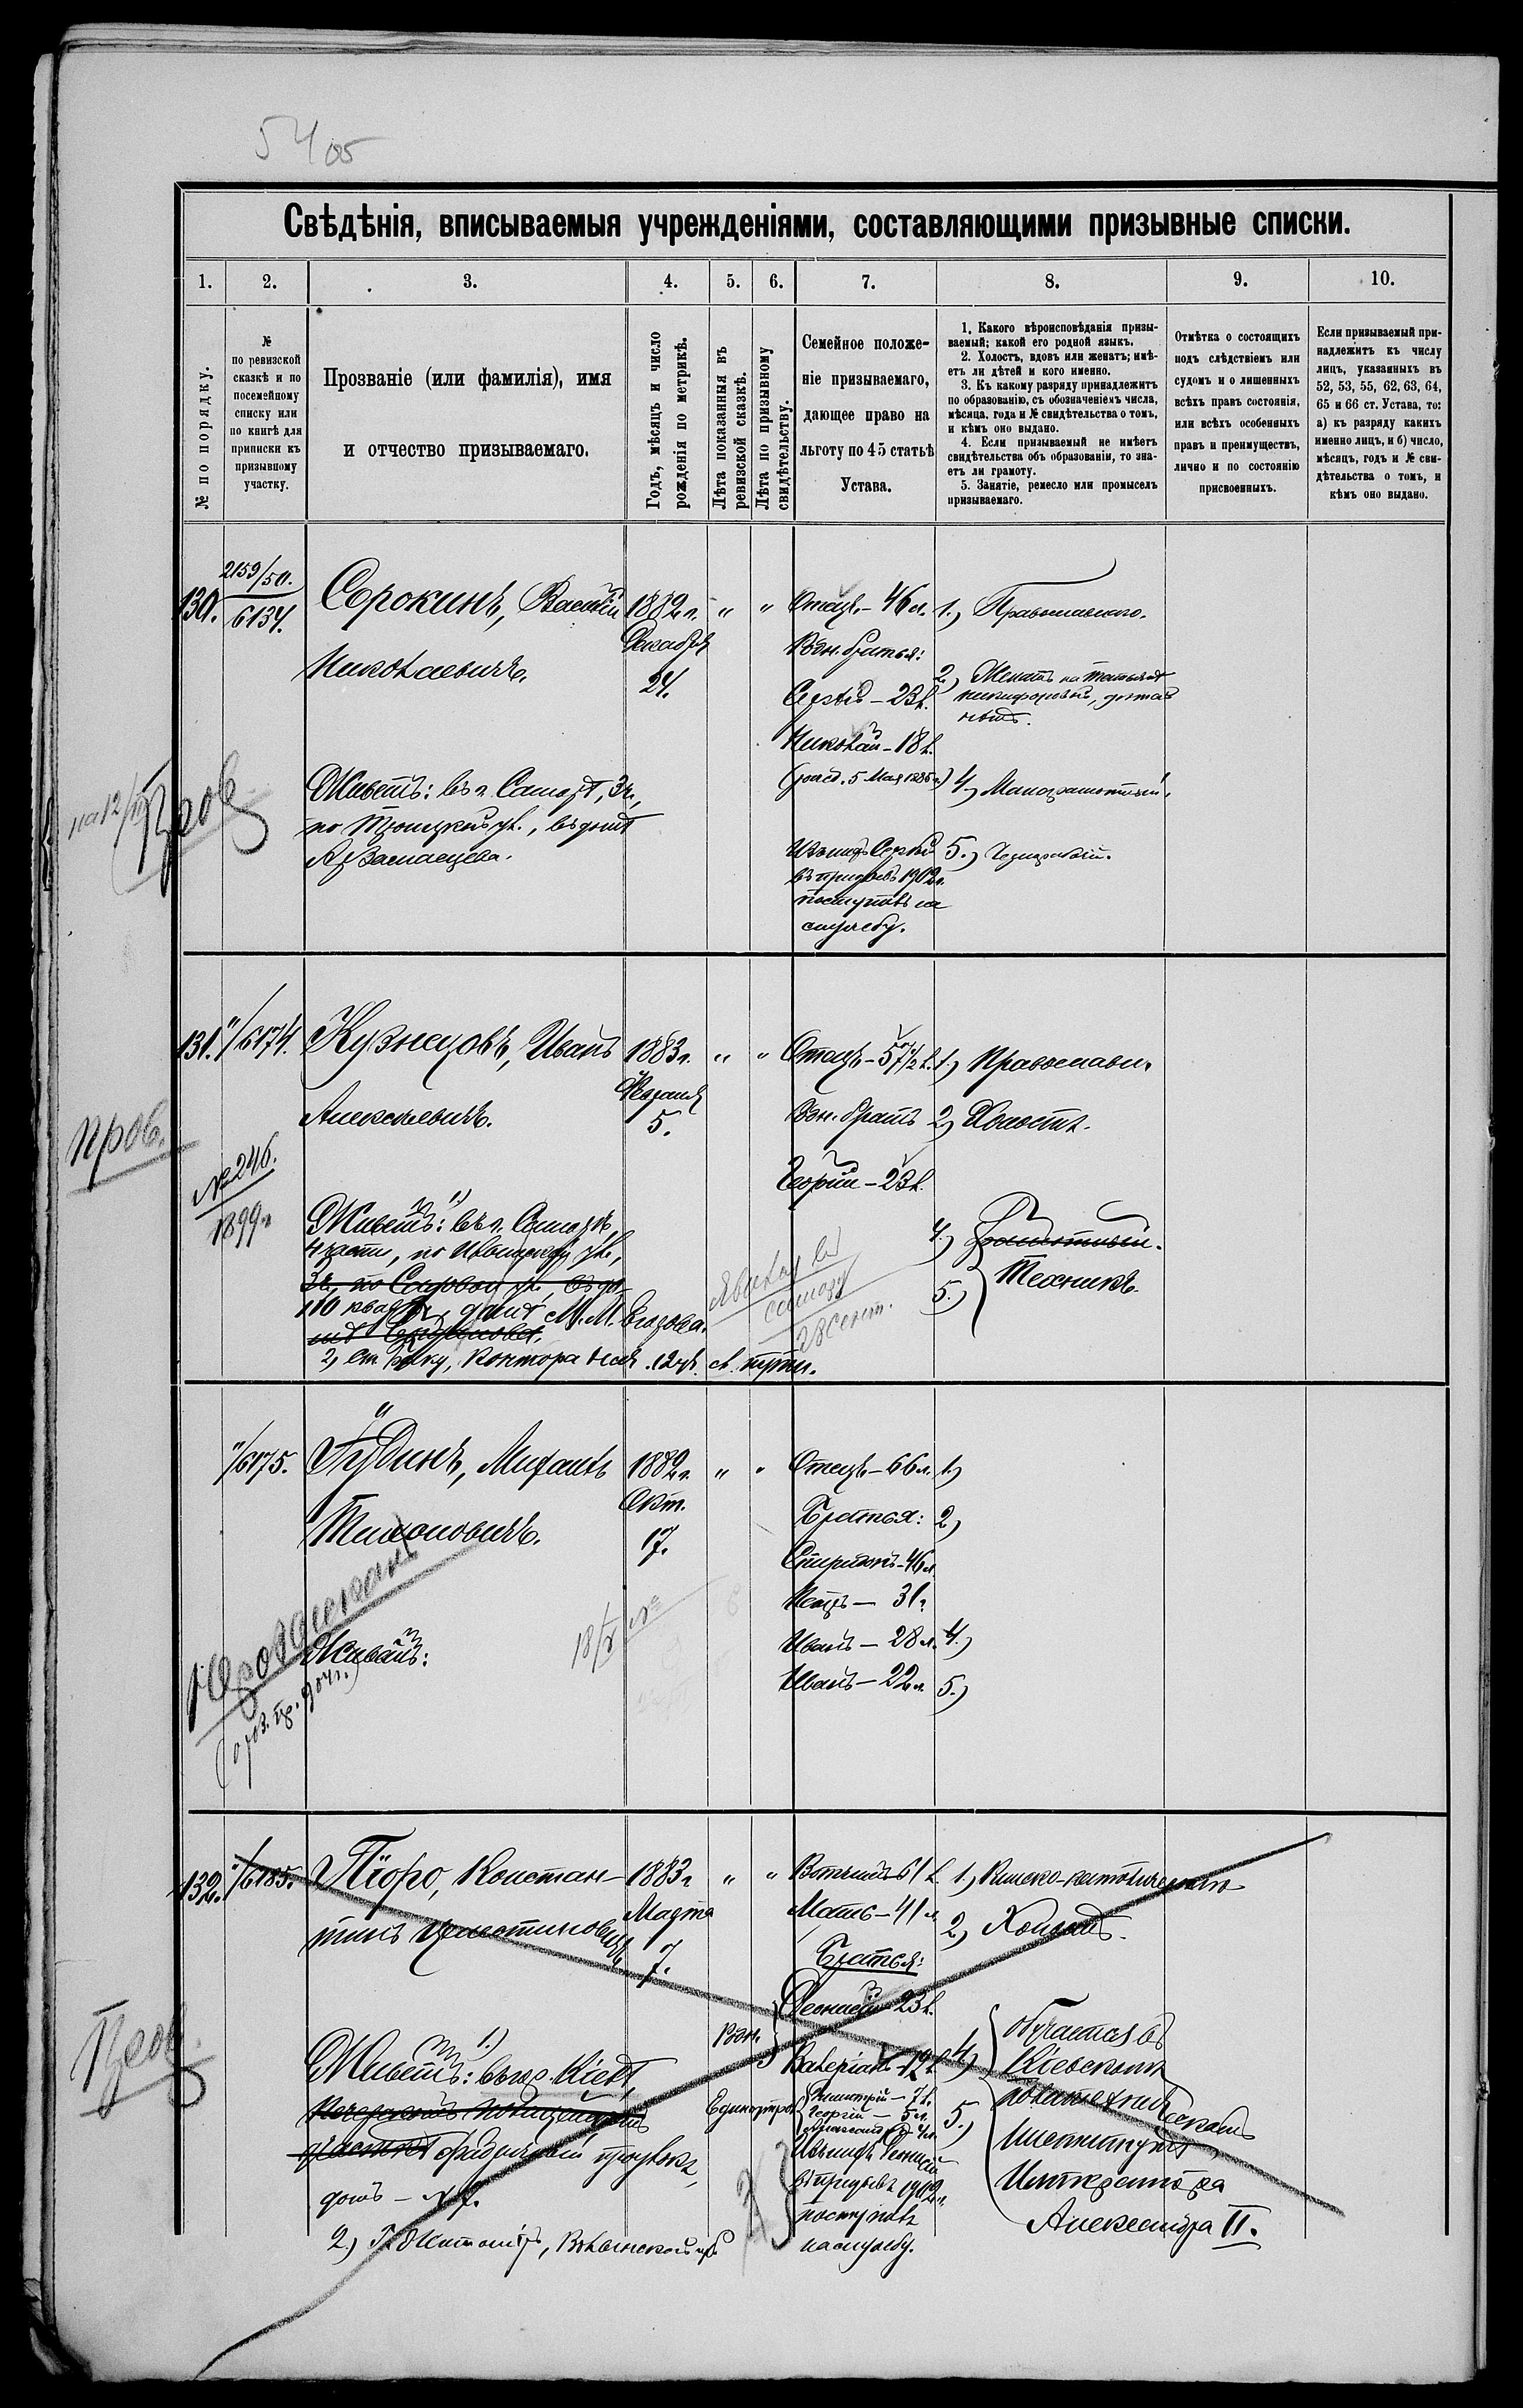 5405
Свѣдѣнія, вписываемыя учрежденіями, составляющими призывные списки.
1. 2. 3. 4. 5. 6. 7. 8. 9. 10.
№ по порядку.
№
по ревизской
сказкѣ и по
посемейному
списку или
по книгѣ для
приписки къ
призывному
участку.
Прозваніе (или фамилія), имя
и отчество призываемаго.
Годъ, мѣсяцъ и число
рожденія по метрикѣ.
Лѣта показанныя въ
ревизской сказкѣ.
Лѣта по призывному
свидѣтельству.
Семейное положе-
ніе призываемаго,
дающее право на
льготу по 45 статьѣ
Устава.
1. Какого вѣроисповѣданія призы-
ваемый; какой его родной языкъ.
2. Холостъ, вдовъ или женатъ; имѣ-
етъ ли дѣтей и кого именно.
3. Къ какому разряду принадлежитъ
по образованію, съ обозначеніемъ числа,
мѣсяца, года и № свидѣтельства о томъ,
и кѣмъ оно выдано.
4. Если призываемый не имѣетъ
свидѣтельства объ образованіи, то зна-
етъ ли грамоту.
5. Занятіе, ремесло или промыселъ
призываемаго.
Отмѣтка о состоящихъ
подъ слѣдствіемъ или
судомъ и о лишенныхъ
всѣхъ правъ состоянія,
или всѣхъ особенныхъ
правъ и преимуществъ,
лично и по состоянію
присвоенныхъ.
Если призываемый при-
надлежитъ къ числу
лицъ, указанныхъ въ
52, 53, 55, 62, 63, 64,
65 и 66 ст. Устава, то:
а) къ разряду какихъ
именно лицъ, и б) число,
мѣсяцъ, годъ и № сви-
дѣтельства о томъ, и
кѣмъ оно выдано.
130.
2159/50.
6134.
Сорокинъ, Василій
Николаевичъ.
Живетъ: въ г. Самарѣ, 3 ч.,
по Троицкой ул., въ домѣ
Арзамасцева.
1882 г.
Декабря
24.
" "
Отецъ – 46 л.
Родн. братья:
Сергѣй – 23 л.
Николай – 18 л.
(рожд. 5 Мая 1885 г.)
Изъ нихъ Сергѣй
въ призывъ 1902 г.
поступилъ на
службу.
1.) Православнаго.
2.) Женатъ на
дѣтей
нѣтъ.
4.) Малограмотный.
5.) Чернорабочій.
131.
"/6174.
Кузнецовъ, Иванъ
Алексѣевичъ.
пров.
№ 246.
1899 г.
Живетъ: 1) въ г. Самарѣ,
4 части, по ул.,
3 ч., по Садовой ул., въ до-
110 кварт., домъ М. М. Егорова.
2) ст. Баку, Контора
1883 г.
Февраля
5.
" "
Отецъ – 57½ л.
Родн. братъ
Георгій – 23 л.
Самару
28 Сент.
1.) Православн.
2.) Холостъ.
4.) Грамотный.
5.) Техникъ.
"/6175.
Гудинъ, Михаилъ
Тихоновичъ.
Живетъ:
1882 г.
Окт.
17.
" "
Отецъ – 66 л.
Братья:
Спиридонъ – 46 л.
Петръ – 31 г.
Иванъ – 28 л.
Иванъ – 22 г.
1.)
2.)
4.)
5.)
132.
"/6185.
Піоро, Констан-
тинъ Целестиновичъ
Пров.
Живетъ: 1) въ гор. Кіевѣ,
Печерскомъ полицейскомъ
участкѣ
домъ – № 7.
2.) Г. Житоміръ, Волынской губ.
1883 г.
Марта
7.
" "
Вотчимъ 61 г.
Мать – 41 г.
Братья:
Родн.
Леонидъ – 23 л.
Валеріанъ – 12 л.
Единоутроб.
Димитрій – 7 л.
Георгій – 5 л.
Изъ нихъ Леонидъ
въ призывъ 1902 г.
поступилъ
на службу.
1.) Римско-католическаго
2.) Холостъ.
4.)
5.)
обучается въ
Кіевскомъ
политехническомъ
институтѣ
Императора
Александра II.